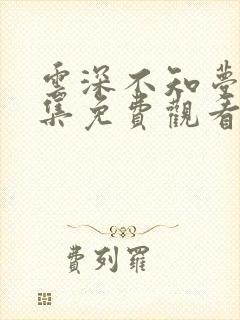 雲深不知夢
集免費觀看
費列羅